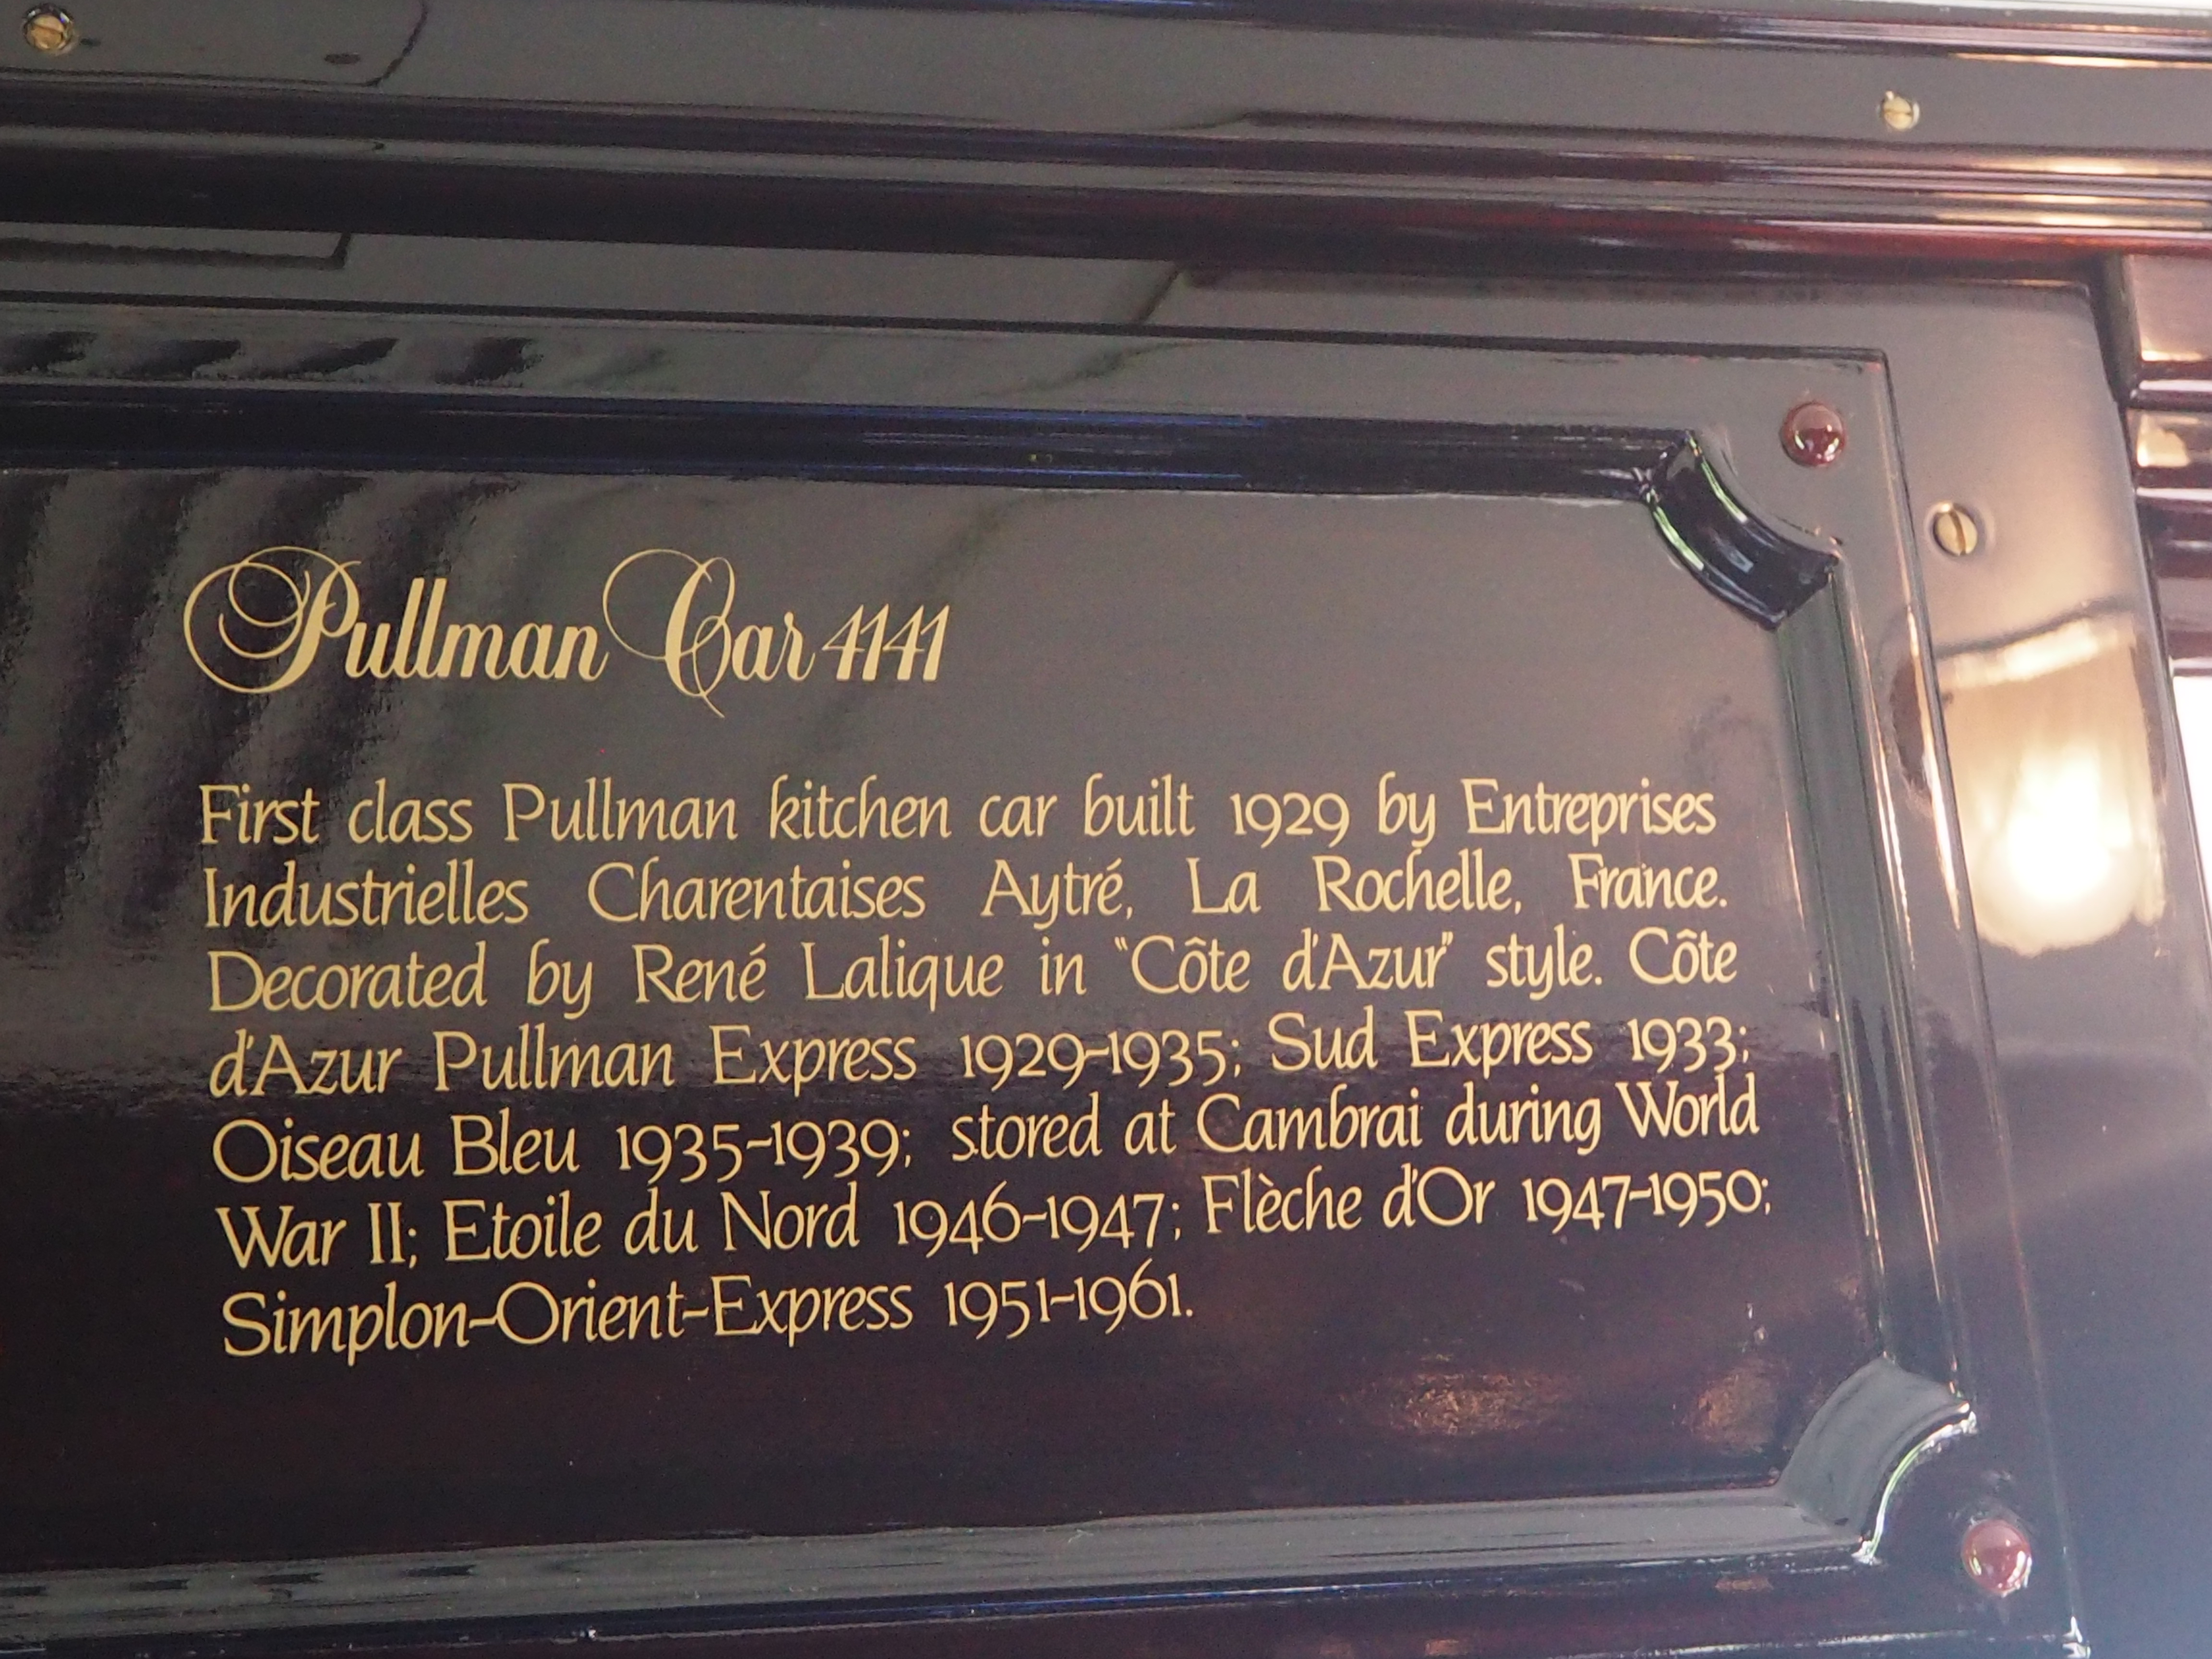 Pullman Car 4141
First class Pullman kitchen car built 1929 by Entreprises
Industrielles Charentaises Aytré, La Rochelle, France.
Decorated by René Lalique in "Côte d'Azur" style. Côte
d'Azur Pullman Express 1929-1935; Sud Express 1933;
Oiseau Bleu 1935-1939; stored at Cambrai during World
War II; Etoile du Nord 1946-1947; Flèche d'Or 1947-1950;
Simplon-Orient-Express 1951-1961.